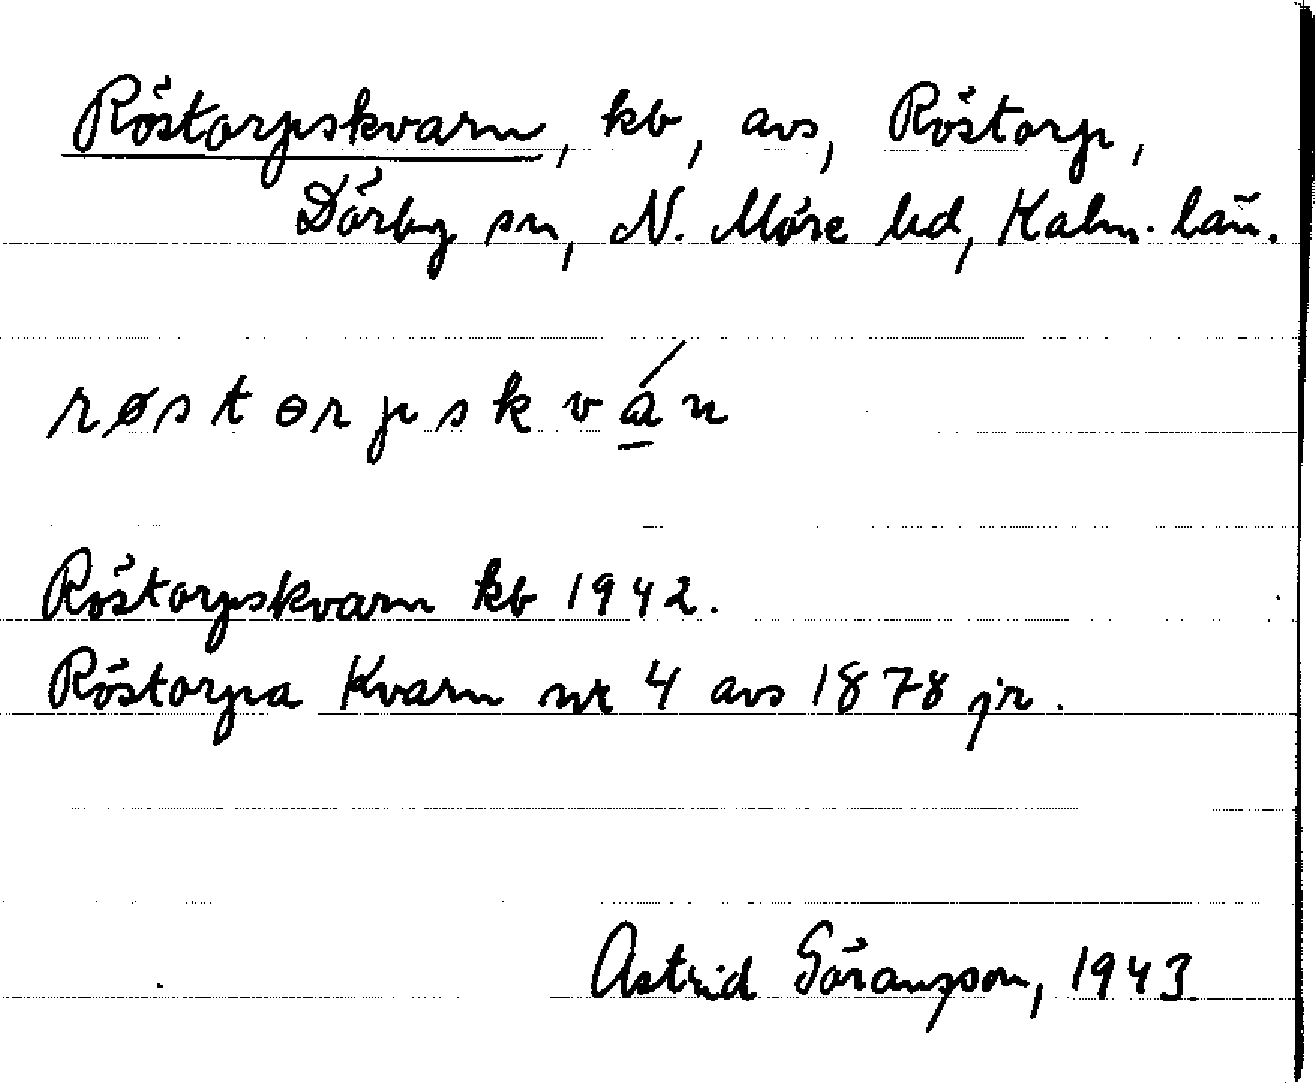 Röstorpskvarn, kb, avs, Röstorp,
Dörby sn, N. Möre hd, Kalm. län.
røstɵrpskvá̱n
Röstorpskvarn kb 1942.
Röstorpa Kvarn nr 4 avs 1878 jr.
Astrid Göransson, 1943